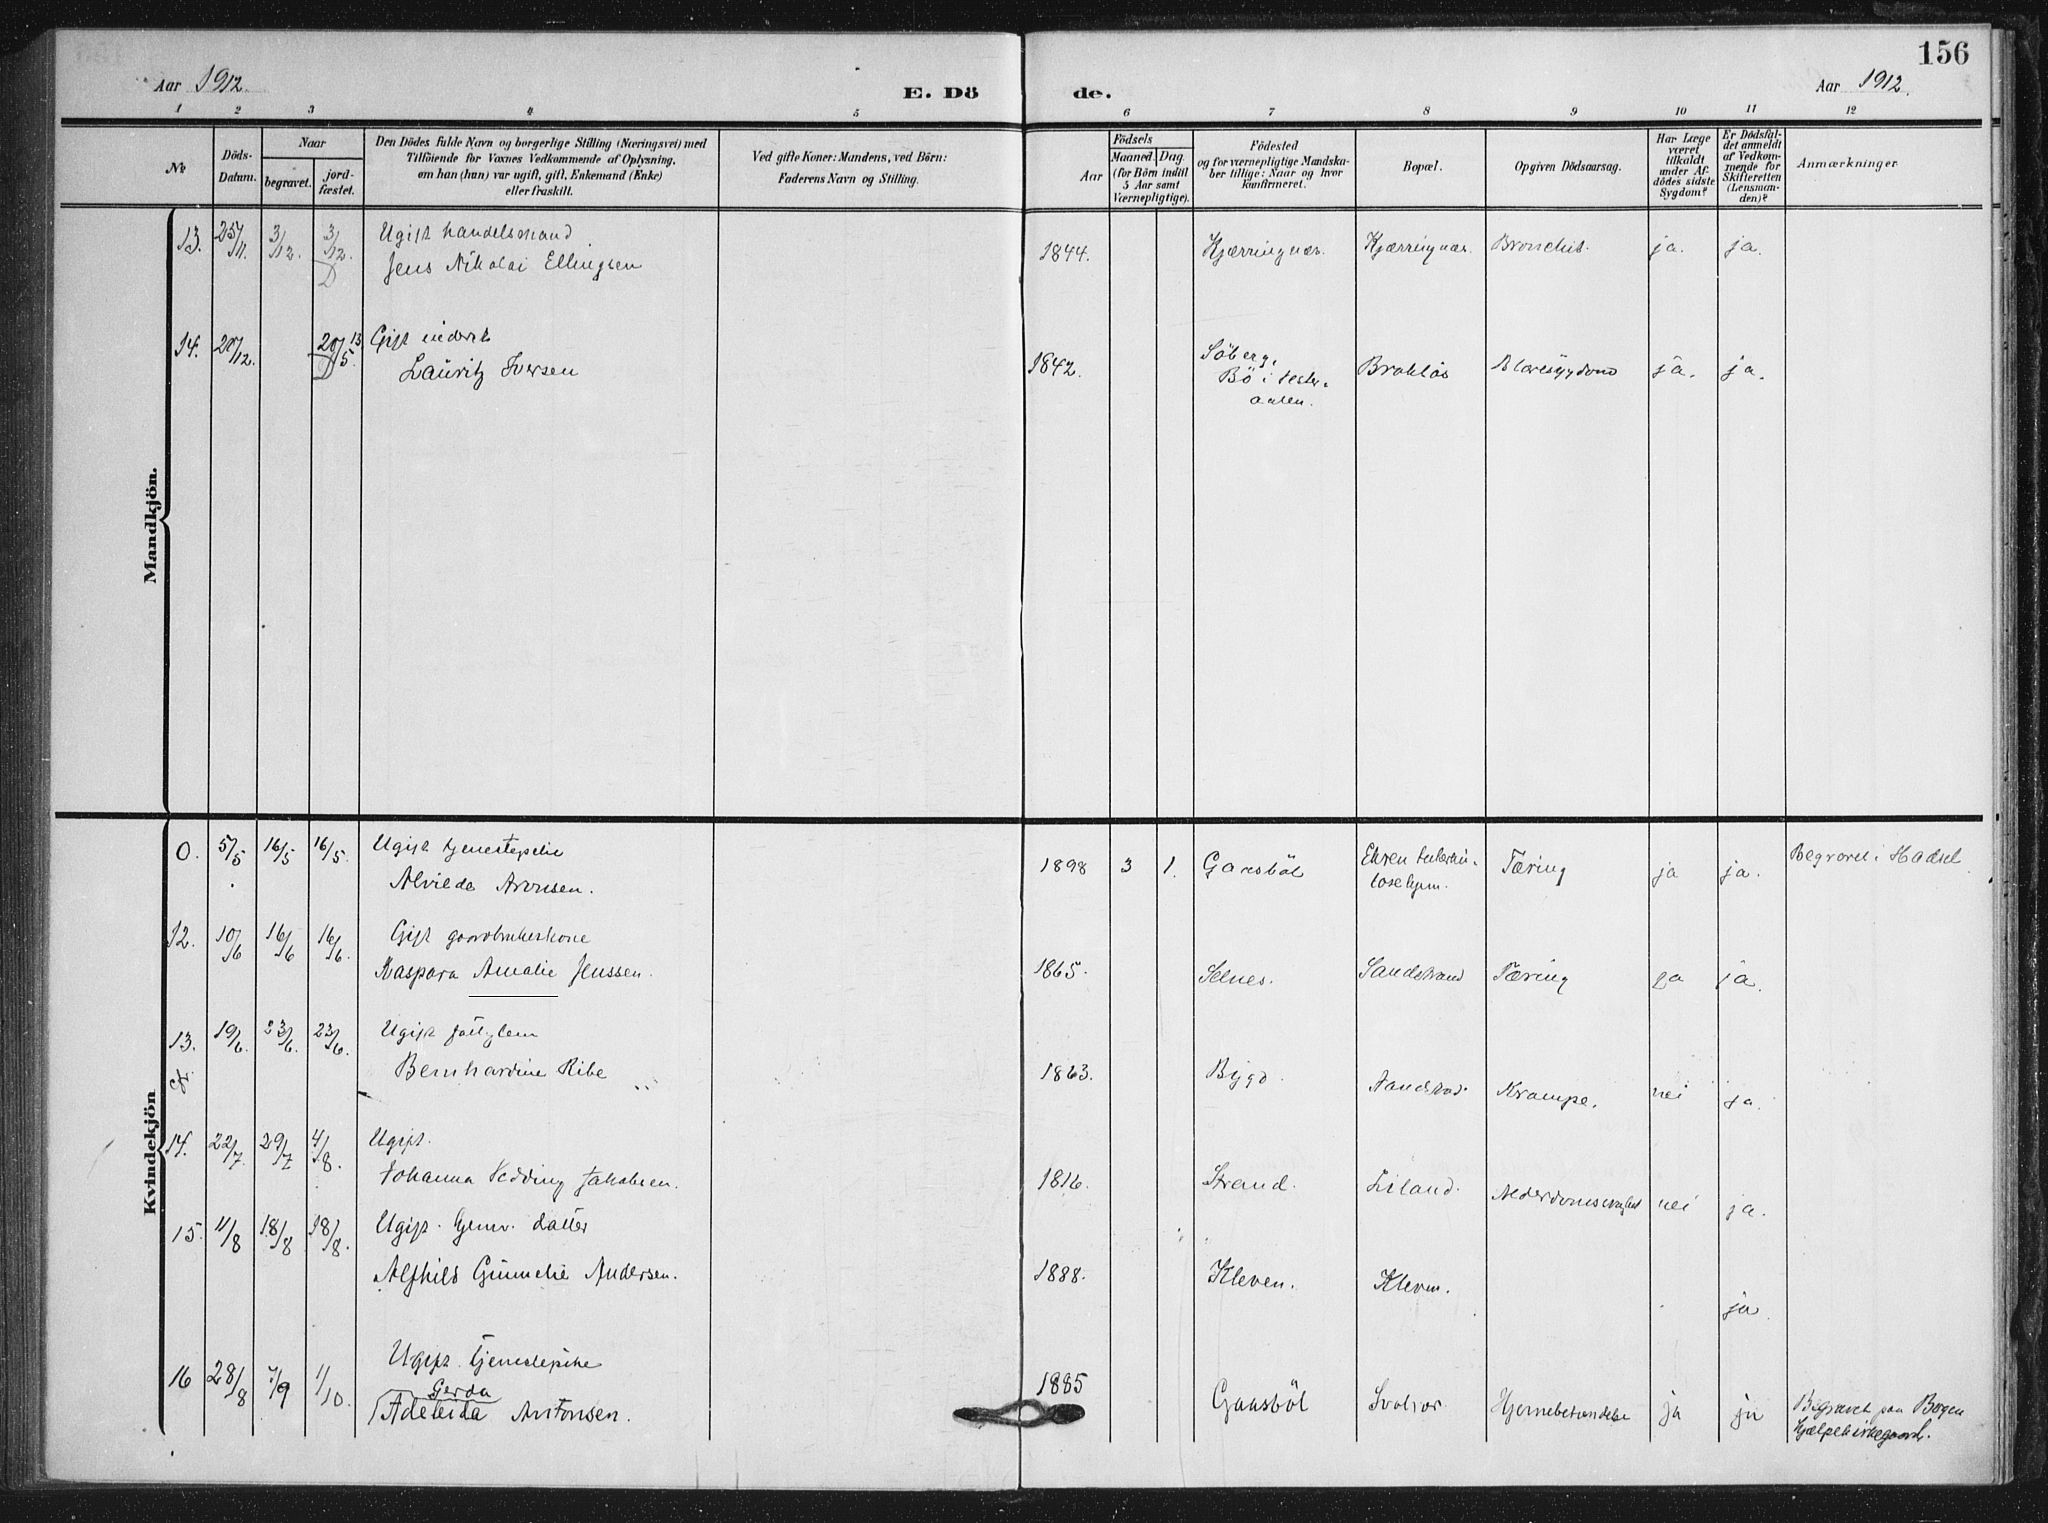 156
Aar 1912.
E. Dö de.
Aar 1912.
1 2 3 4 5 6 7 8 9 10 11 12
No
Döds-Datum.
Naar
begravet.
jord-fæstet.
Den Dödes fulde Navn og borgerlige Stilling (Næringsvei) med
Tilföiende for Voxnes Vedkommende af Oplysning,
om han (hun) var ugift, gift, Enkemand (Enke)
eller fraskilt.
Ved gifte Koner: Mandens, ved Börn:
Faderens Navn og Stilling.
Födsels
Aar
Maaned. Dag.
(for Börn indtil
5 Aar samt
Værnepligtige).
Födested
og for værnepligtige Mandska-
ber tillige: Naar og hvor
konfirmeret.
Bopæl.
Opgiven Dödsaarsag.
Har Læge
været
tilkaldt
under Af-
dödes sidste
Sygdom?
Er Dödsfal-
det anmeldt
af Vedkom-
mende for
Skifteretten
(Lensman-
den)?
Anmærkninger
Mandkjön.
13. 25/11. 3/12. 3/12. Ugift handelsmand
D Jens Nikolai Ellingsen 1844. Kjærringnæs. Kjærringnæs. Bronchit. ja. ja.
14. 20/12. 20/5. 13 Gift
D Lauritz Iversen 1842. Söberg, Bö i Vester-
aalen. Blæresygdom ja. ja.
Kvindekjön
0. 5/5 16/5 16/5. Ugift tjenestepike
Alvilde Aronsen. 1898 3 1. Gaasböl Tæring ja ja. Begravet i Hadsel
12. 10/6 16/6 16/6. Gift gaardbrukerkone
Kaspara Amalie Jenssen. 1865. Selnes. Sandstrand Tæring ja ja.
13. 19/6. 23/6. 23/6. Ugift fattiglem
Bernhardine Ribe 1863. Bygd. Krampe. nei ja.
14. 22/7. 29/7 4/8. Ugift.
Johanna Hedding Jakobsen. 1816. Strand. Liland. Alderdomssvaghet nei ja.
15. 11/8 18/8 18/8. Ugift. Gmr. datter
Alfhild Gunnelie Andersen. 1888. Kleven. Kleven. ja
16 28/8 7/9 1/10. Ugift tjenestepike
Gerda
(Adeleida Antonsen. 1885 Gaasböl Svolvær Hjernebetændelse ja ja Begravet paa Bogen
Hjælpekirkegaard.